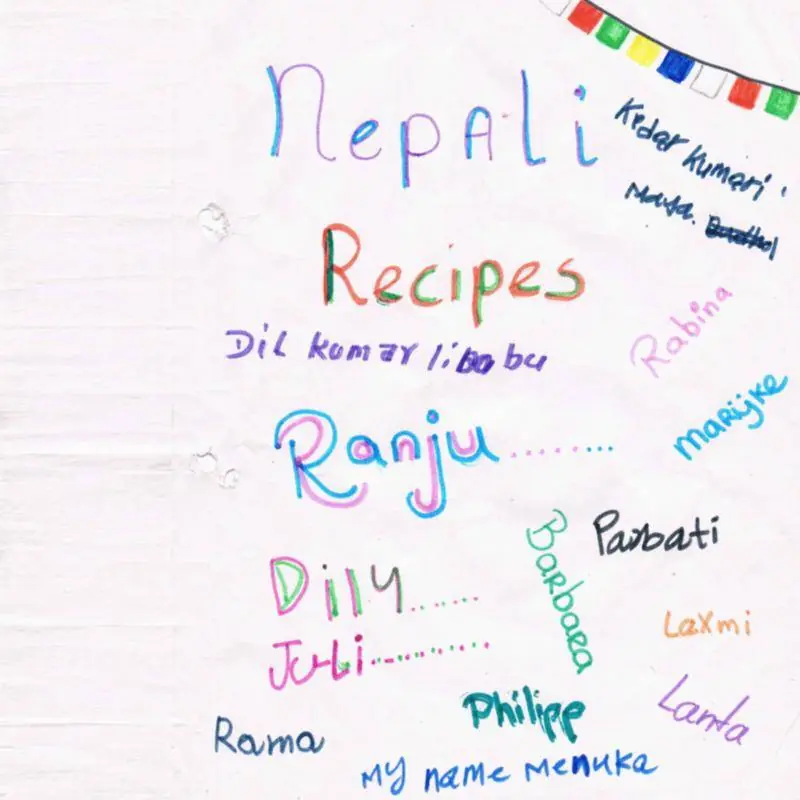 Nepali
Kedar Kumari
Maya.
Recipes
Rabina
Dil kumar
Marijke
Ranju.........
Parbati
Barbara
Dily......
Laxmi
Juli...........
Lanta
Philipp
Rama
My name Menuka